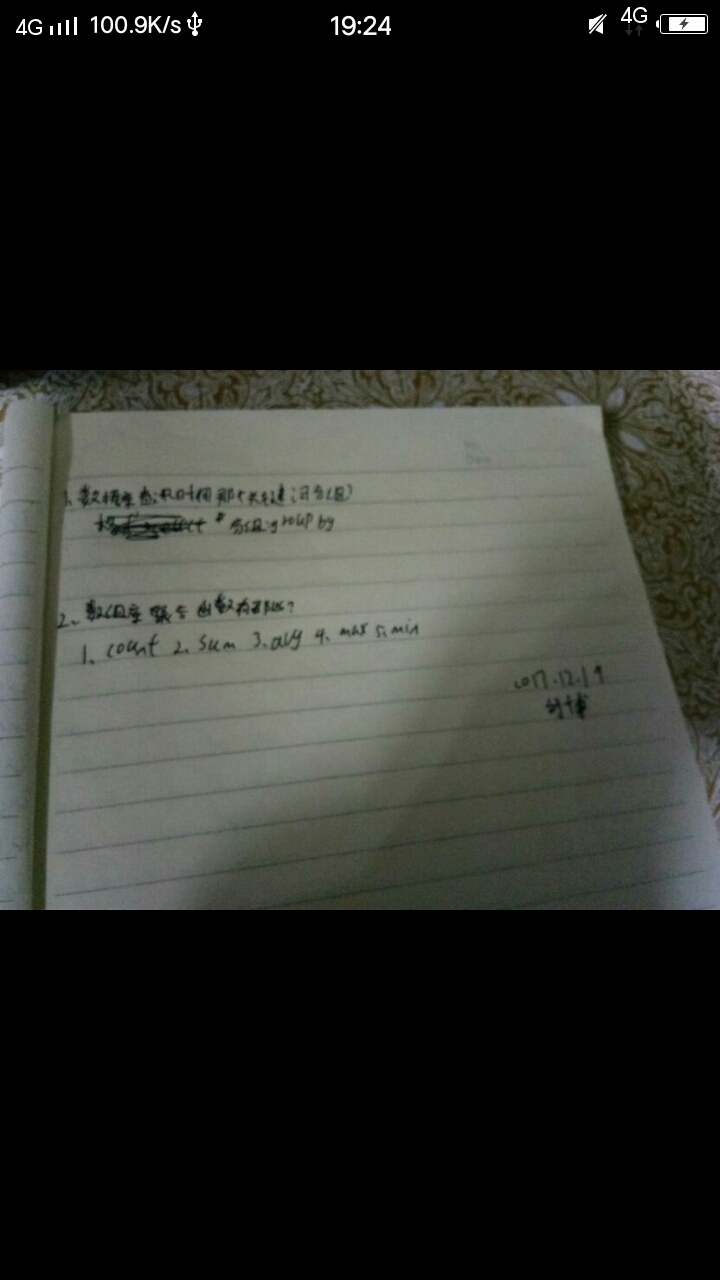 4G 100.9K/s 19:24 4G
1、数据库查询时用那个关键词分组)
# 分组:group by
2、数据库聚合函数有那些?
1、count 2、sum 3、avg 4、max 5、min
2017.12.19